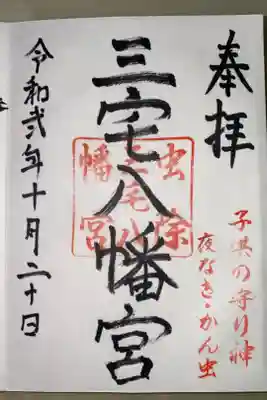 奉拝
子供の守り神
夜なき・かん虫
三宅八幡宮
虫除
三宅八
幡宮
令和弐年十月二十日